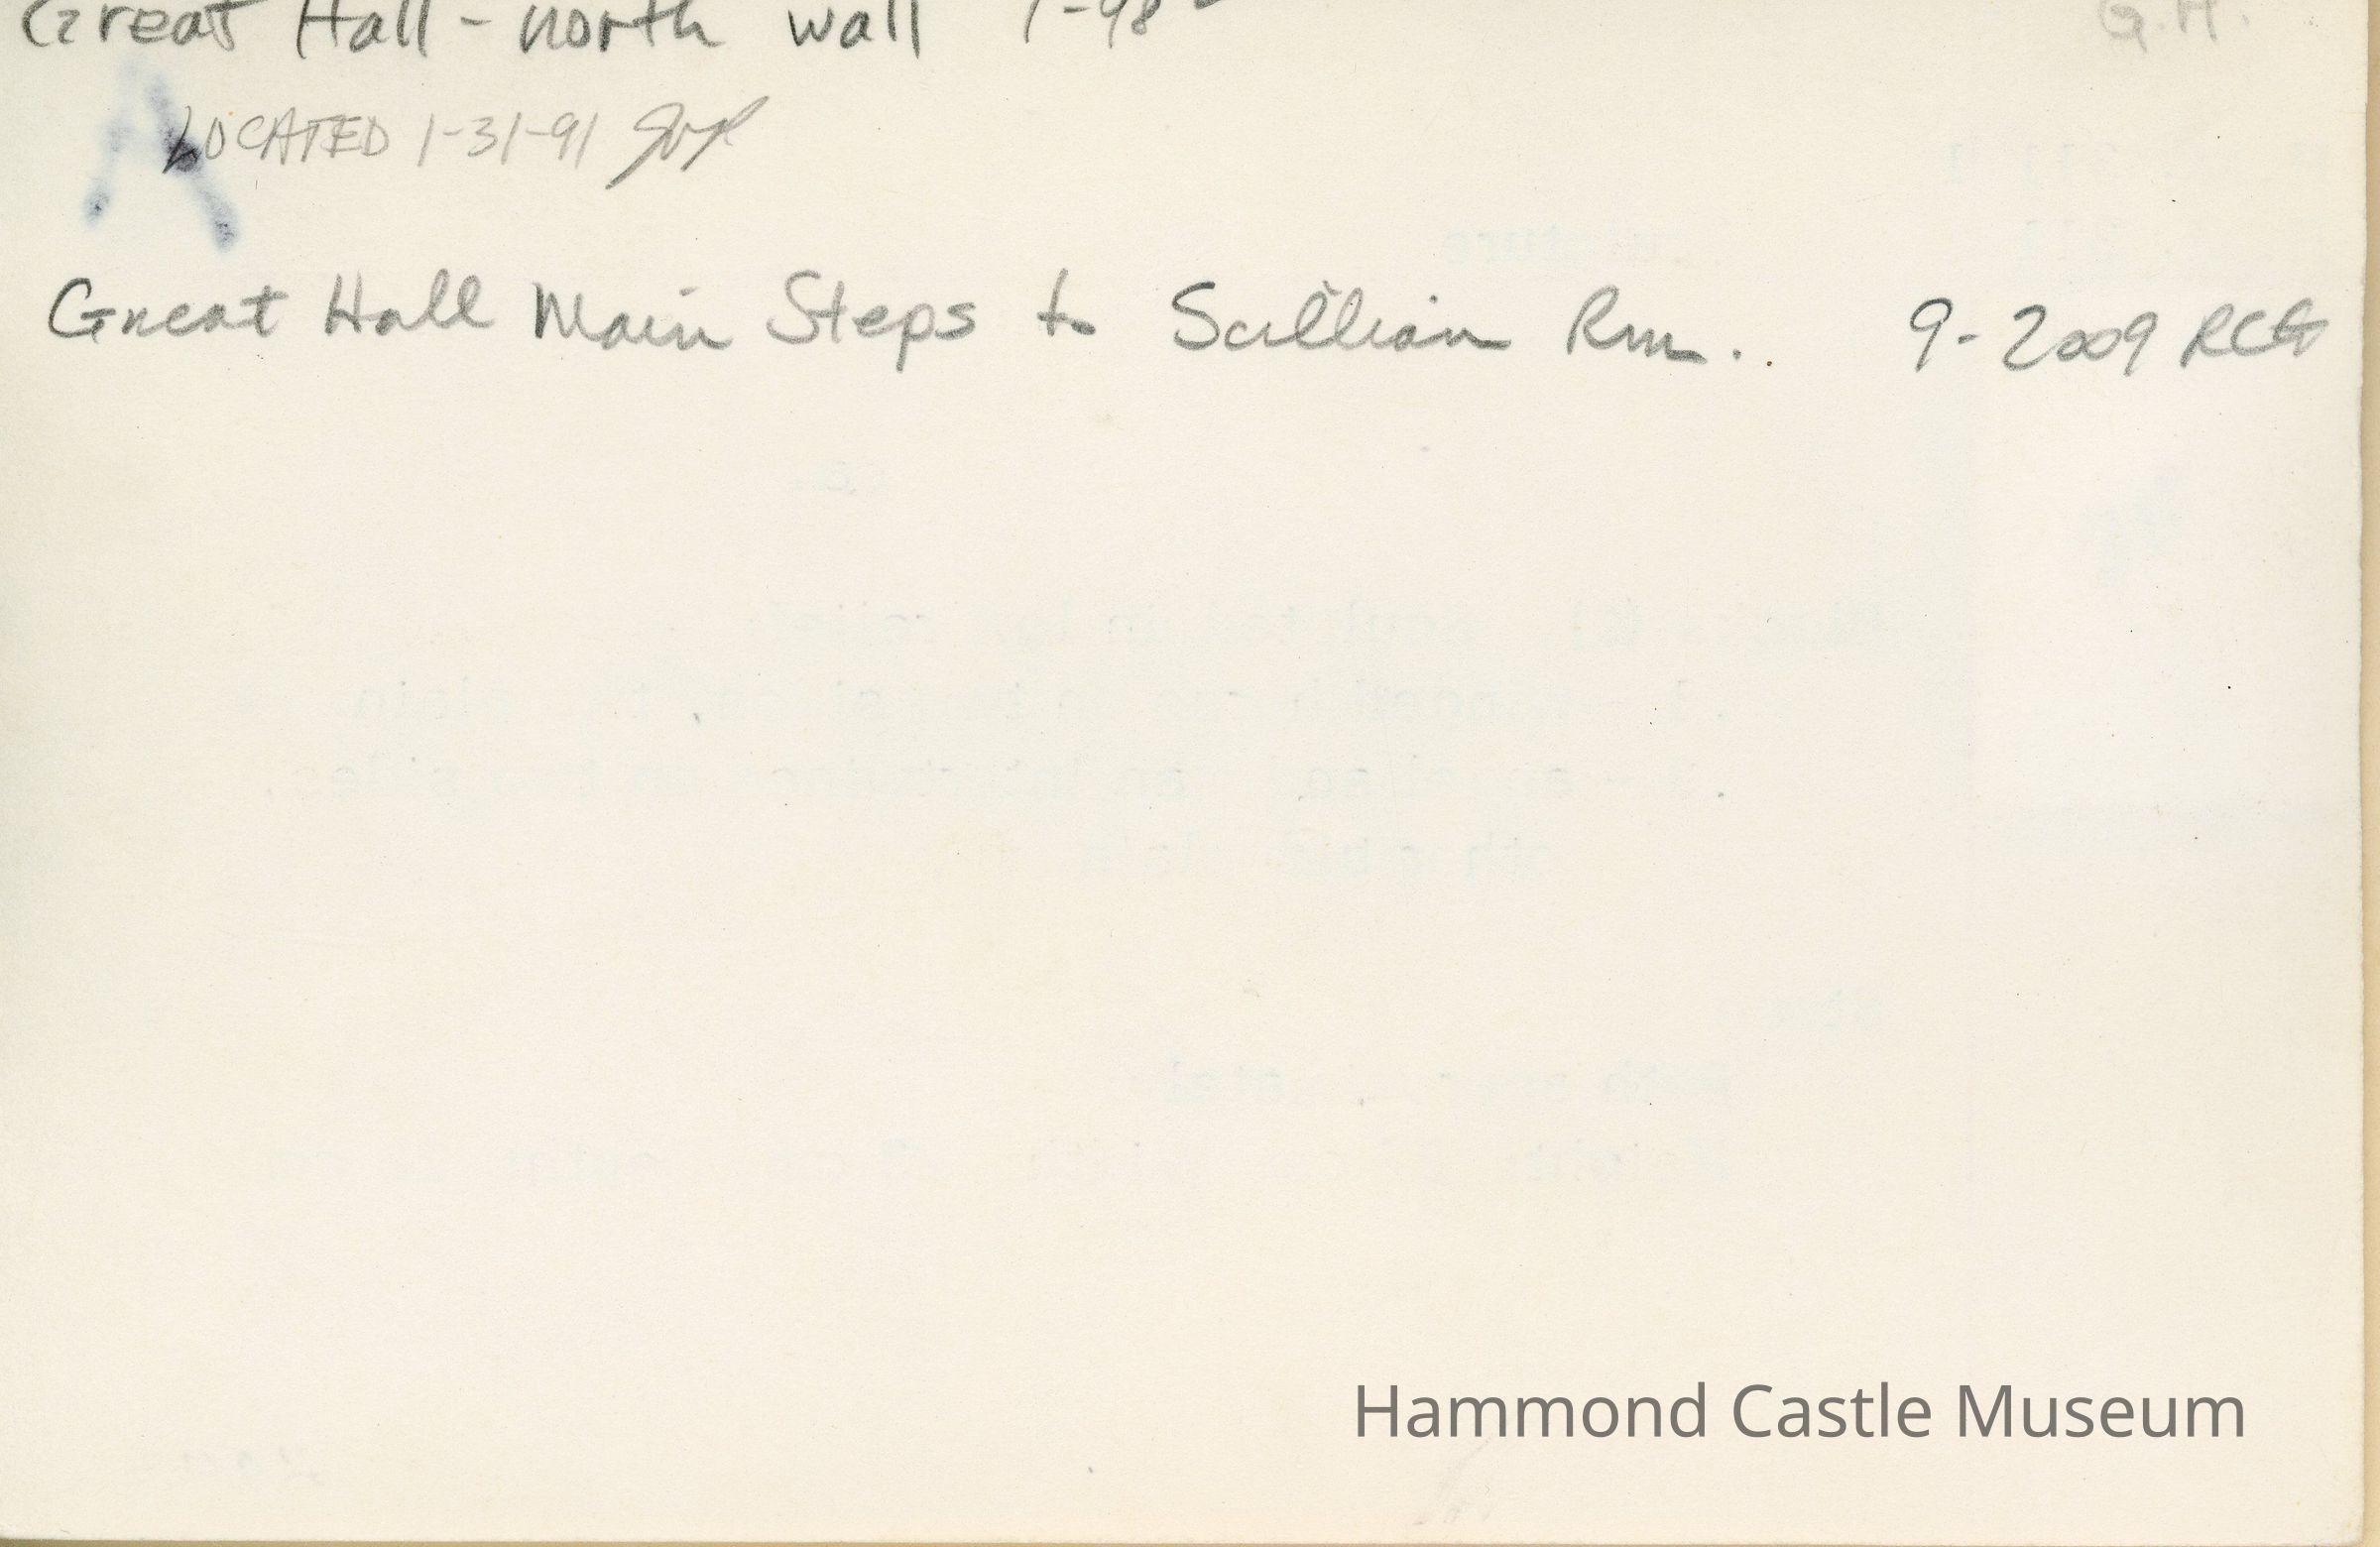 Great Hall - north wall 1-98 G.H.
LOCATED 1-31-91
Great Hall Main Steps to Rm.. 9-2009 RCG
Hammond Castle Museum